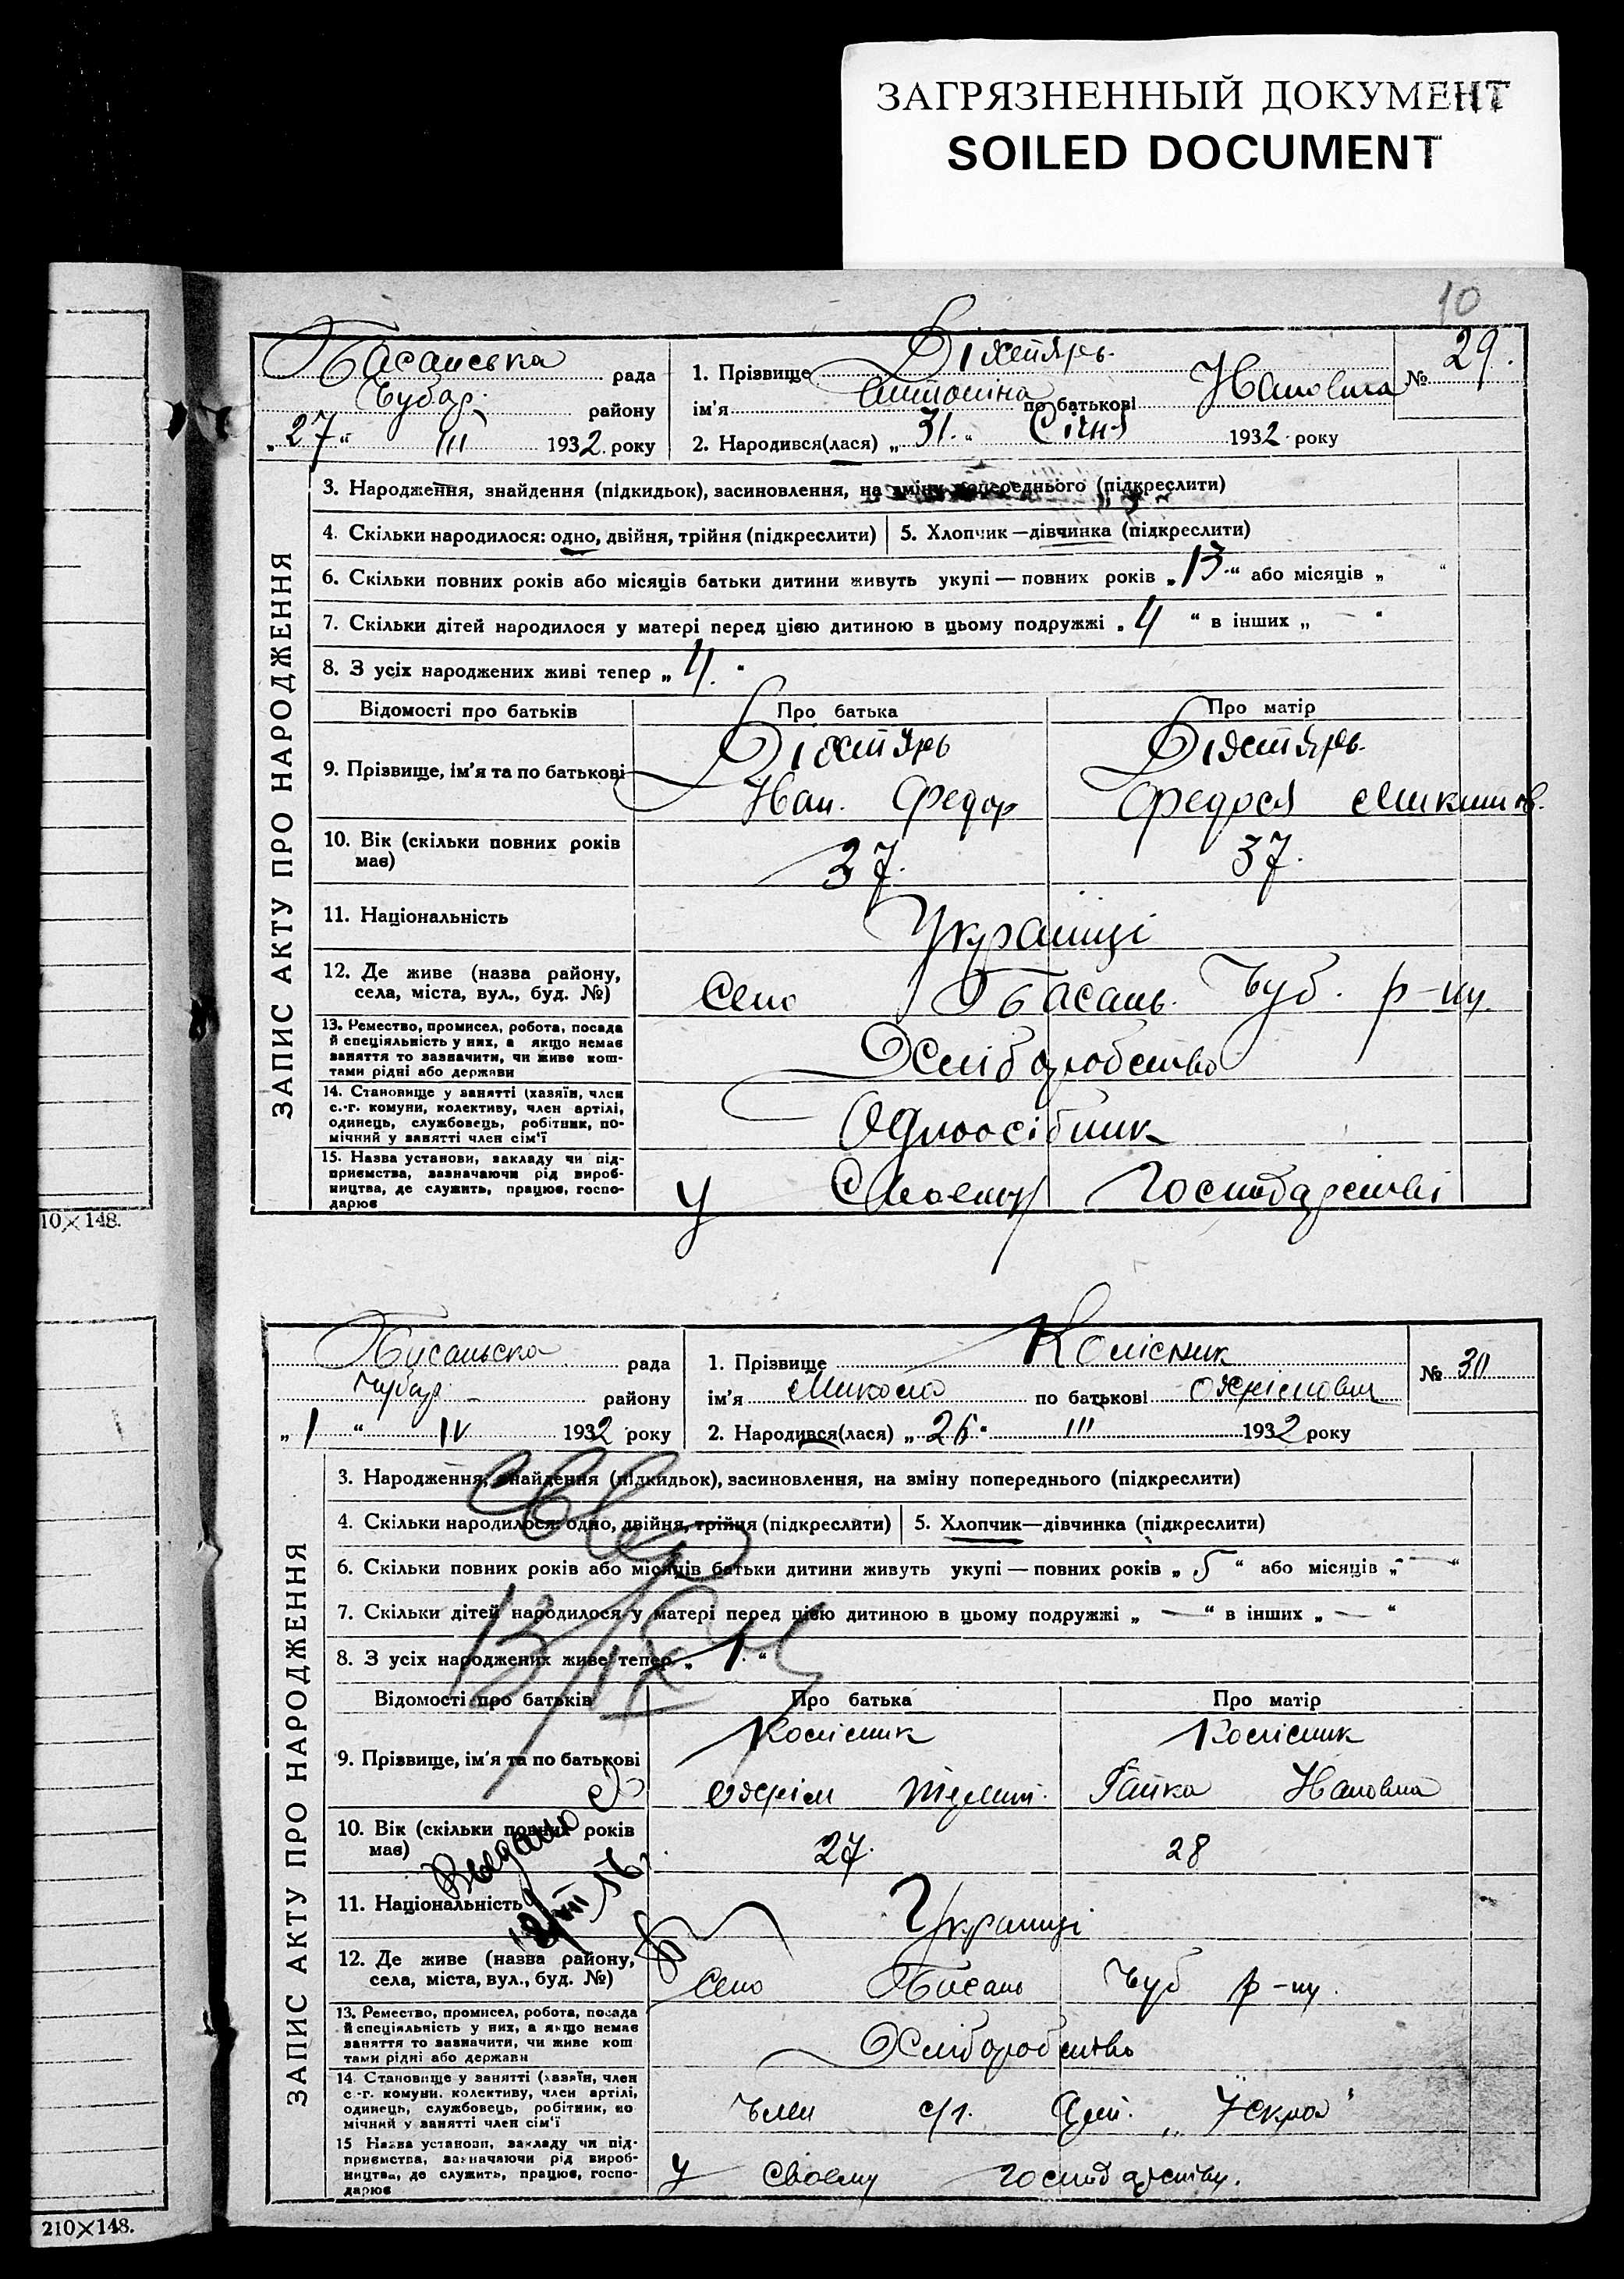 ЗАГРЯЗНЕННЫЙ ДОКУМЕНТ
SOILED DOCUMENT
10
10×148.
210×148.
ЗАПИС АКТУ ПРО НАРОДЖЕННЯ
Басанська рада
Чубар. району
„27“ III 1932. року
1. Прізвище Діхтярь
ім'я Антоніна по батькові Ивановна
2. Народився(лася) „31.“ Січня 1932 року
№ 29.
3. Народження, знайдення (підкидьок), засиновлення, на зміну попереднього (підкреслити)
4. Скільки народилося: одно, двійня, трійня (підкреслити)
5. Хлопчик—дівчинка (підкреслити)
6. Скільки повних років або місяців батьки дитини живуть укупі — повних років „13.“ або місяців „ “
7. Скільки дітей народилося у матері перед цією дитиною в цьому подружжі „4 “ в інших „ — “
8. З усіх народжених живі тепер „4.“
Відомості про батьків Про батька Про матір
9. Прізвище, ім'я та по батькові
Діхтярь
Иван. Федор
Діхтярь
Федося Микитов.
10. Вік (скільки повних років має) 37. 37.
11. Національність Українці
12. Де живе (назва району,
села, міста, вул., буд. №) Село Басань. Чуб. р-ну.
13. Ремество, промисел, робота, посада
й спеціяльність у них, а якщо немає
заняття то зазначити, чи живе кош-
тами рідні або держави
Хліборобство
14. Становище у занятті (хазяїн, член
с.-г. комуни, колективу, член артілі,
одинець, службовець, робітник, по-
мічний у занятті член сім'ї
Одноосібник
15. Назва установи, закладу чи під-
приємства, зазначаючи рід вироб-
ництва, де служить, працює, госпо-
дарює
у своему господарстві
ЗАПИС АКТУ ПРО НАРОДЖЕННЯ
Басаньска рада
Чубар. району
„1“ IV 1932 року
1. Прізвище Колісник
ім'я Микола по батькові
2. Народився(лася) „26“ III 1932 року
№ 30
3. Народження, знайдення (підкидьок), засиновлення, на зміну попереднього (підкреслити)
4. Скільки народилося: одно, двійня, трійня (підкреслити)
5. Хлопчик—дівчинка (підкреслити)
6. Скільки повних років або місяців батьки дитини живуть укупі — повних років „5“ або місяців „—“
7. Скільки дітей народилося у матері перед цією дитиною в цьому подружжі „ — “ в інших „ — “
8. З усіх народжених живе тепер „1.“
Відомості про батьків Про батька Про матір
9. Прізвище, ім'я та по батькові
Колісник
Колісник
Гапка Ивановна
10. Вік (скільки повних років
має) 27. 28
Выдано
11. Національність Українці
12. Де живе (назва району,
села, міста, вул., буд. №) Село Басань Чуб р-ну.
13. Ремество, промисел, робота, посада
й спеціяльність у них, а якщо немає
заняття то зазначити, чи живе кош
тами рідні або держави
Хліборобство
14 Становище у занятті (хазяїн, член
с-г. комуни, колективу, член артілі,
одинець, службовець, робітник, по
мічний у занятті член сім'ї
Член с/г. Арт. „Іскра“
15 Назва установи, закладу чи під-
приємства, зазначаючи рід вироб-
ництва, де служить, працює, госпо-
дарює
у своему господарству.